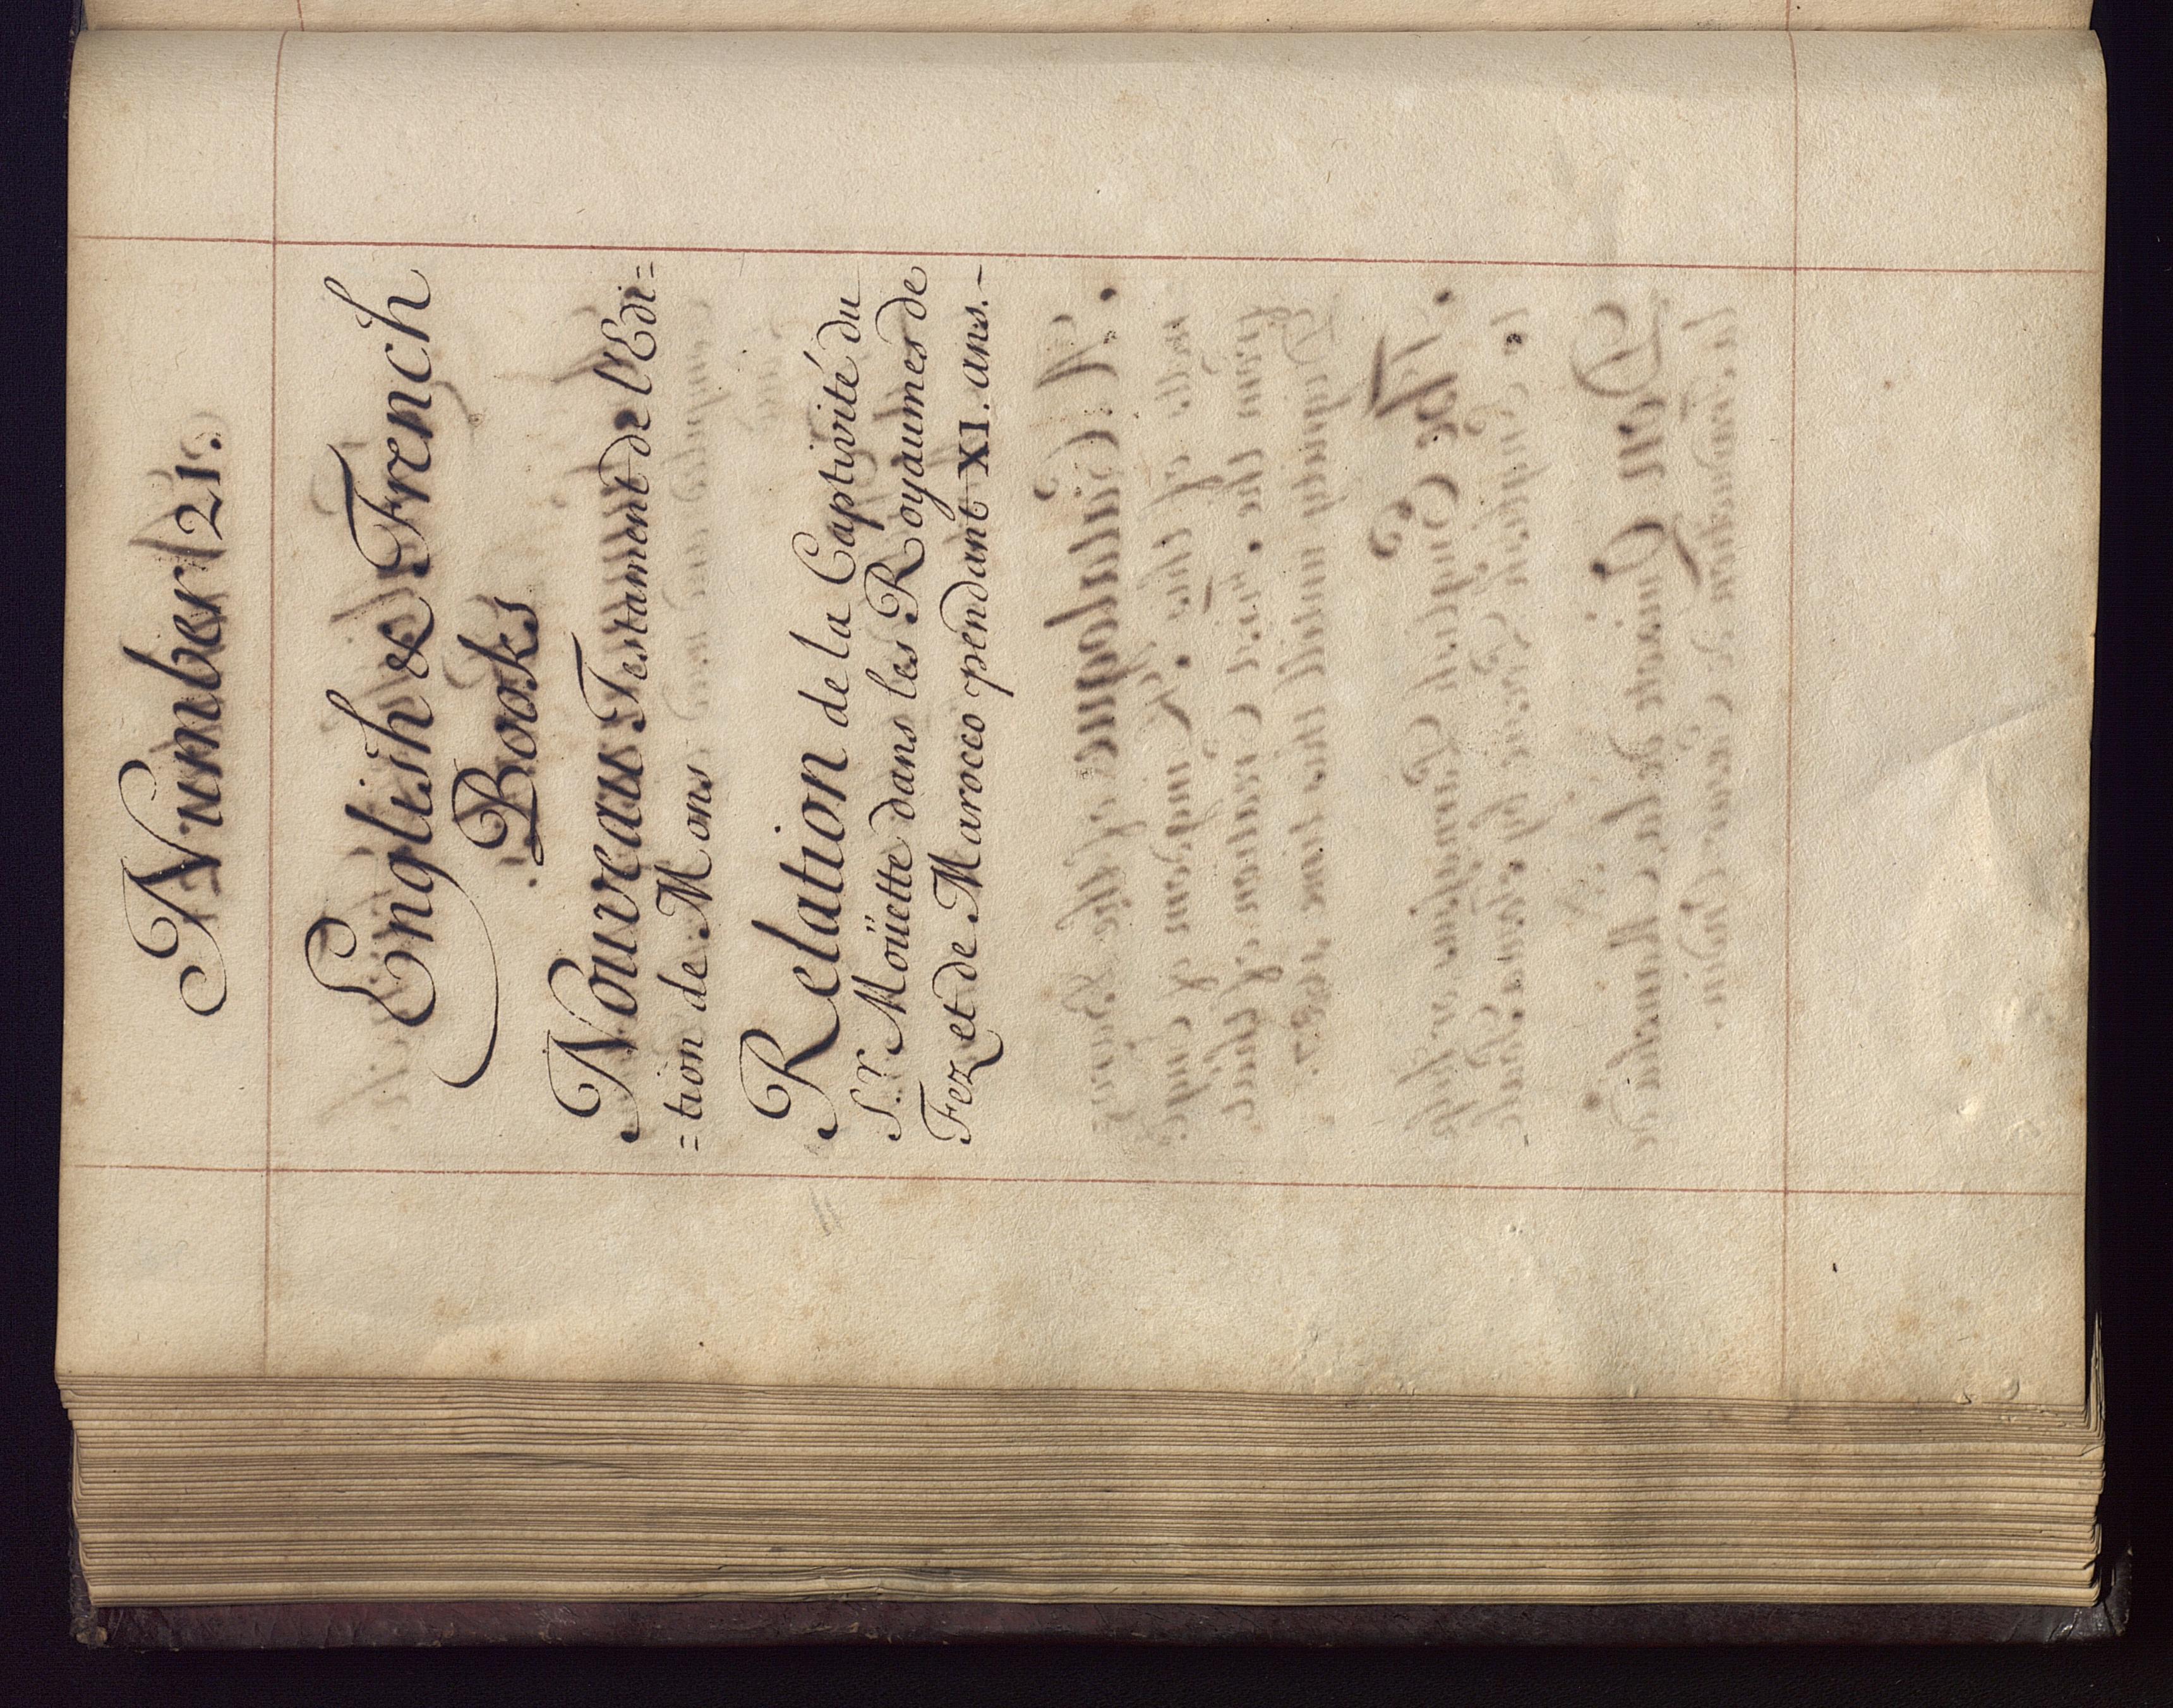 Number 21.
English & French
Books
Nouveau Testament de l'Edi=
=tion de Mons
Relation de la Captivité du
S.r Moüette dans les Royaumes de
Fez et de Marocco pendant XI. ans.-